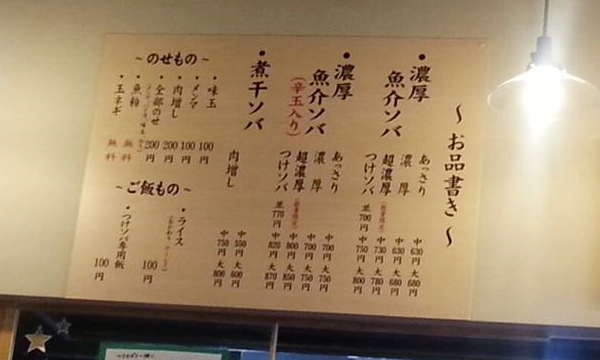 ～お品書き～
・濃厚
魚介ソバ
あっさり 中630円 大680円
濃厚 中630円 大680円
超濃厚（数量限定） 中730円 大780円
つけソバ 並700円 中750円 大800円
・濃厚
魚介ソバ
（辛玉入り）
あっさり 中700円 大750円
濃厚 中700円 大750円
超濃厚（数量限定） 中800円 大850円
つけソバ 並770円 中820円 大870円
・煮干ソバ
中550円 大600円
肉増し 中750円 大800円
～のせもの～
・味玉 100円
・メンマ 100円
・肉増し 200円
・全部のせ 200円
・魚粉 無料
・玉ネギ 無料
～ご飯もの～
・ライス
100円
・つけソバ専用飯 100円